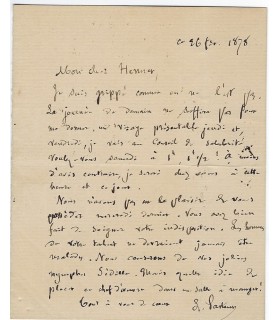 ce 26 fév. 1878
Mon cher Henner,
Je suis grippé comme on ne l'est pas.
La journée de demain ne suffira pas pour
me donner un visage présentable jeudi et,
vendredi, je vais au Conseil de
Voulez-vous samedi à 1h 1/2 ? À moins
d'avis contraire, je serai chez vous à cette
heure et ce jour.
Nous n'avons pas eu le plaisir de vous
posséder mercredi dernier. Vous avez bien
fait de soigner votre indisposition. Les hommes
de votre talent ne devraient jamais être
malades. Nous causerons de vos jolies
nymphes Mais quelle idée de
placer un chef d'œuvre dans une salle à manger !
Tout à vous de cœur